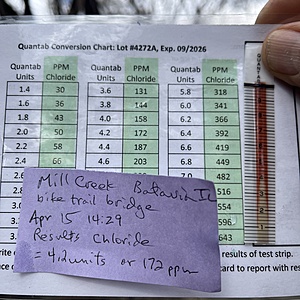 Quantab Conversion Chart: Lot #4272A, Exp. 09/2026
Quantab Units PPM Chloride Quantab Units PPM Chloride Quantab Units PPM Chloride
1.4 30 3.6 131 5.8 318
1.6 36 3.8 144 6.0 341
1.8 43 4.0 158 6.2 366
2.0 50 4.2 172 6.4 392
2.2 58 4.4 187 6.6 419
2.4 66 4.6 203 6.8 449
482
516
554
596
643
Mill Creek Batavia IL
bike trail bridge
Apr 15 14:29
Results Chloride
= 4.2 units or 172 ppm
results of test strip.
card to report with